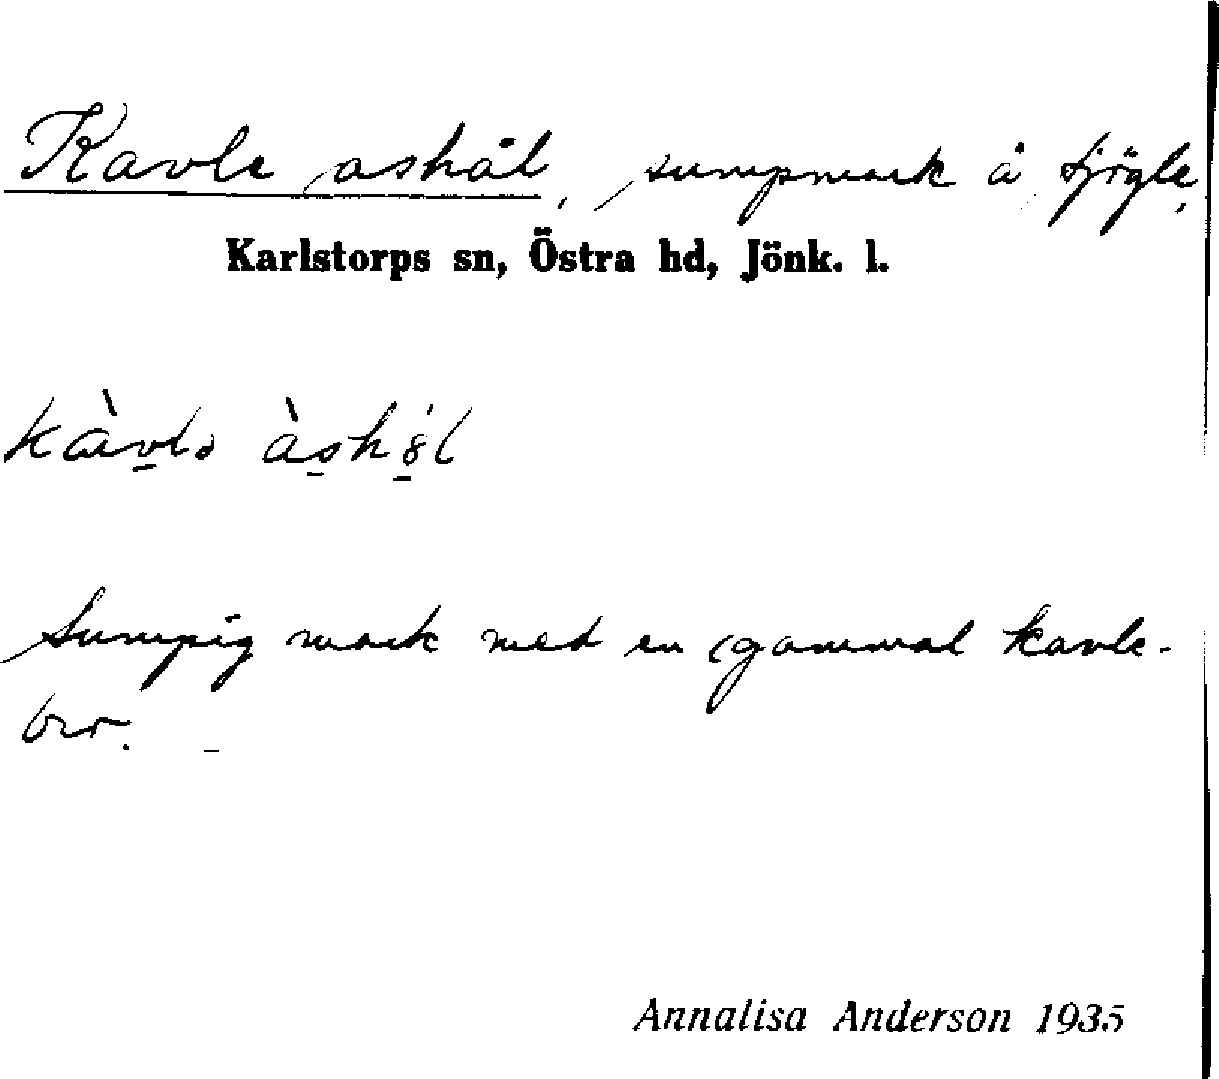 Kavle ashål, sumpmark å tjögle,
Karlstorps sn, Östra hd, Jönk. l.
kàvlə àsho̠l
Sumpig mark med en gammal kavle-
bro.
Annalisa Anderson 1935